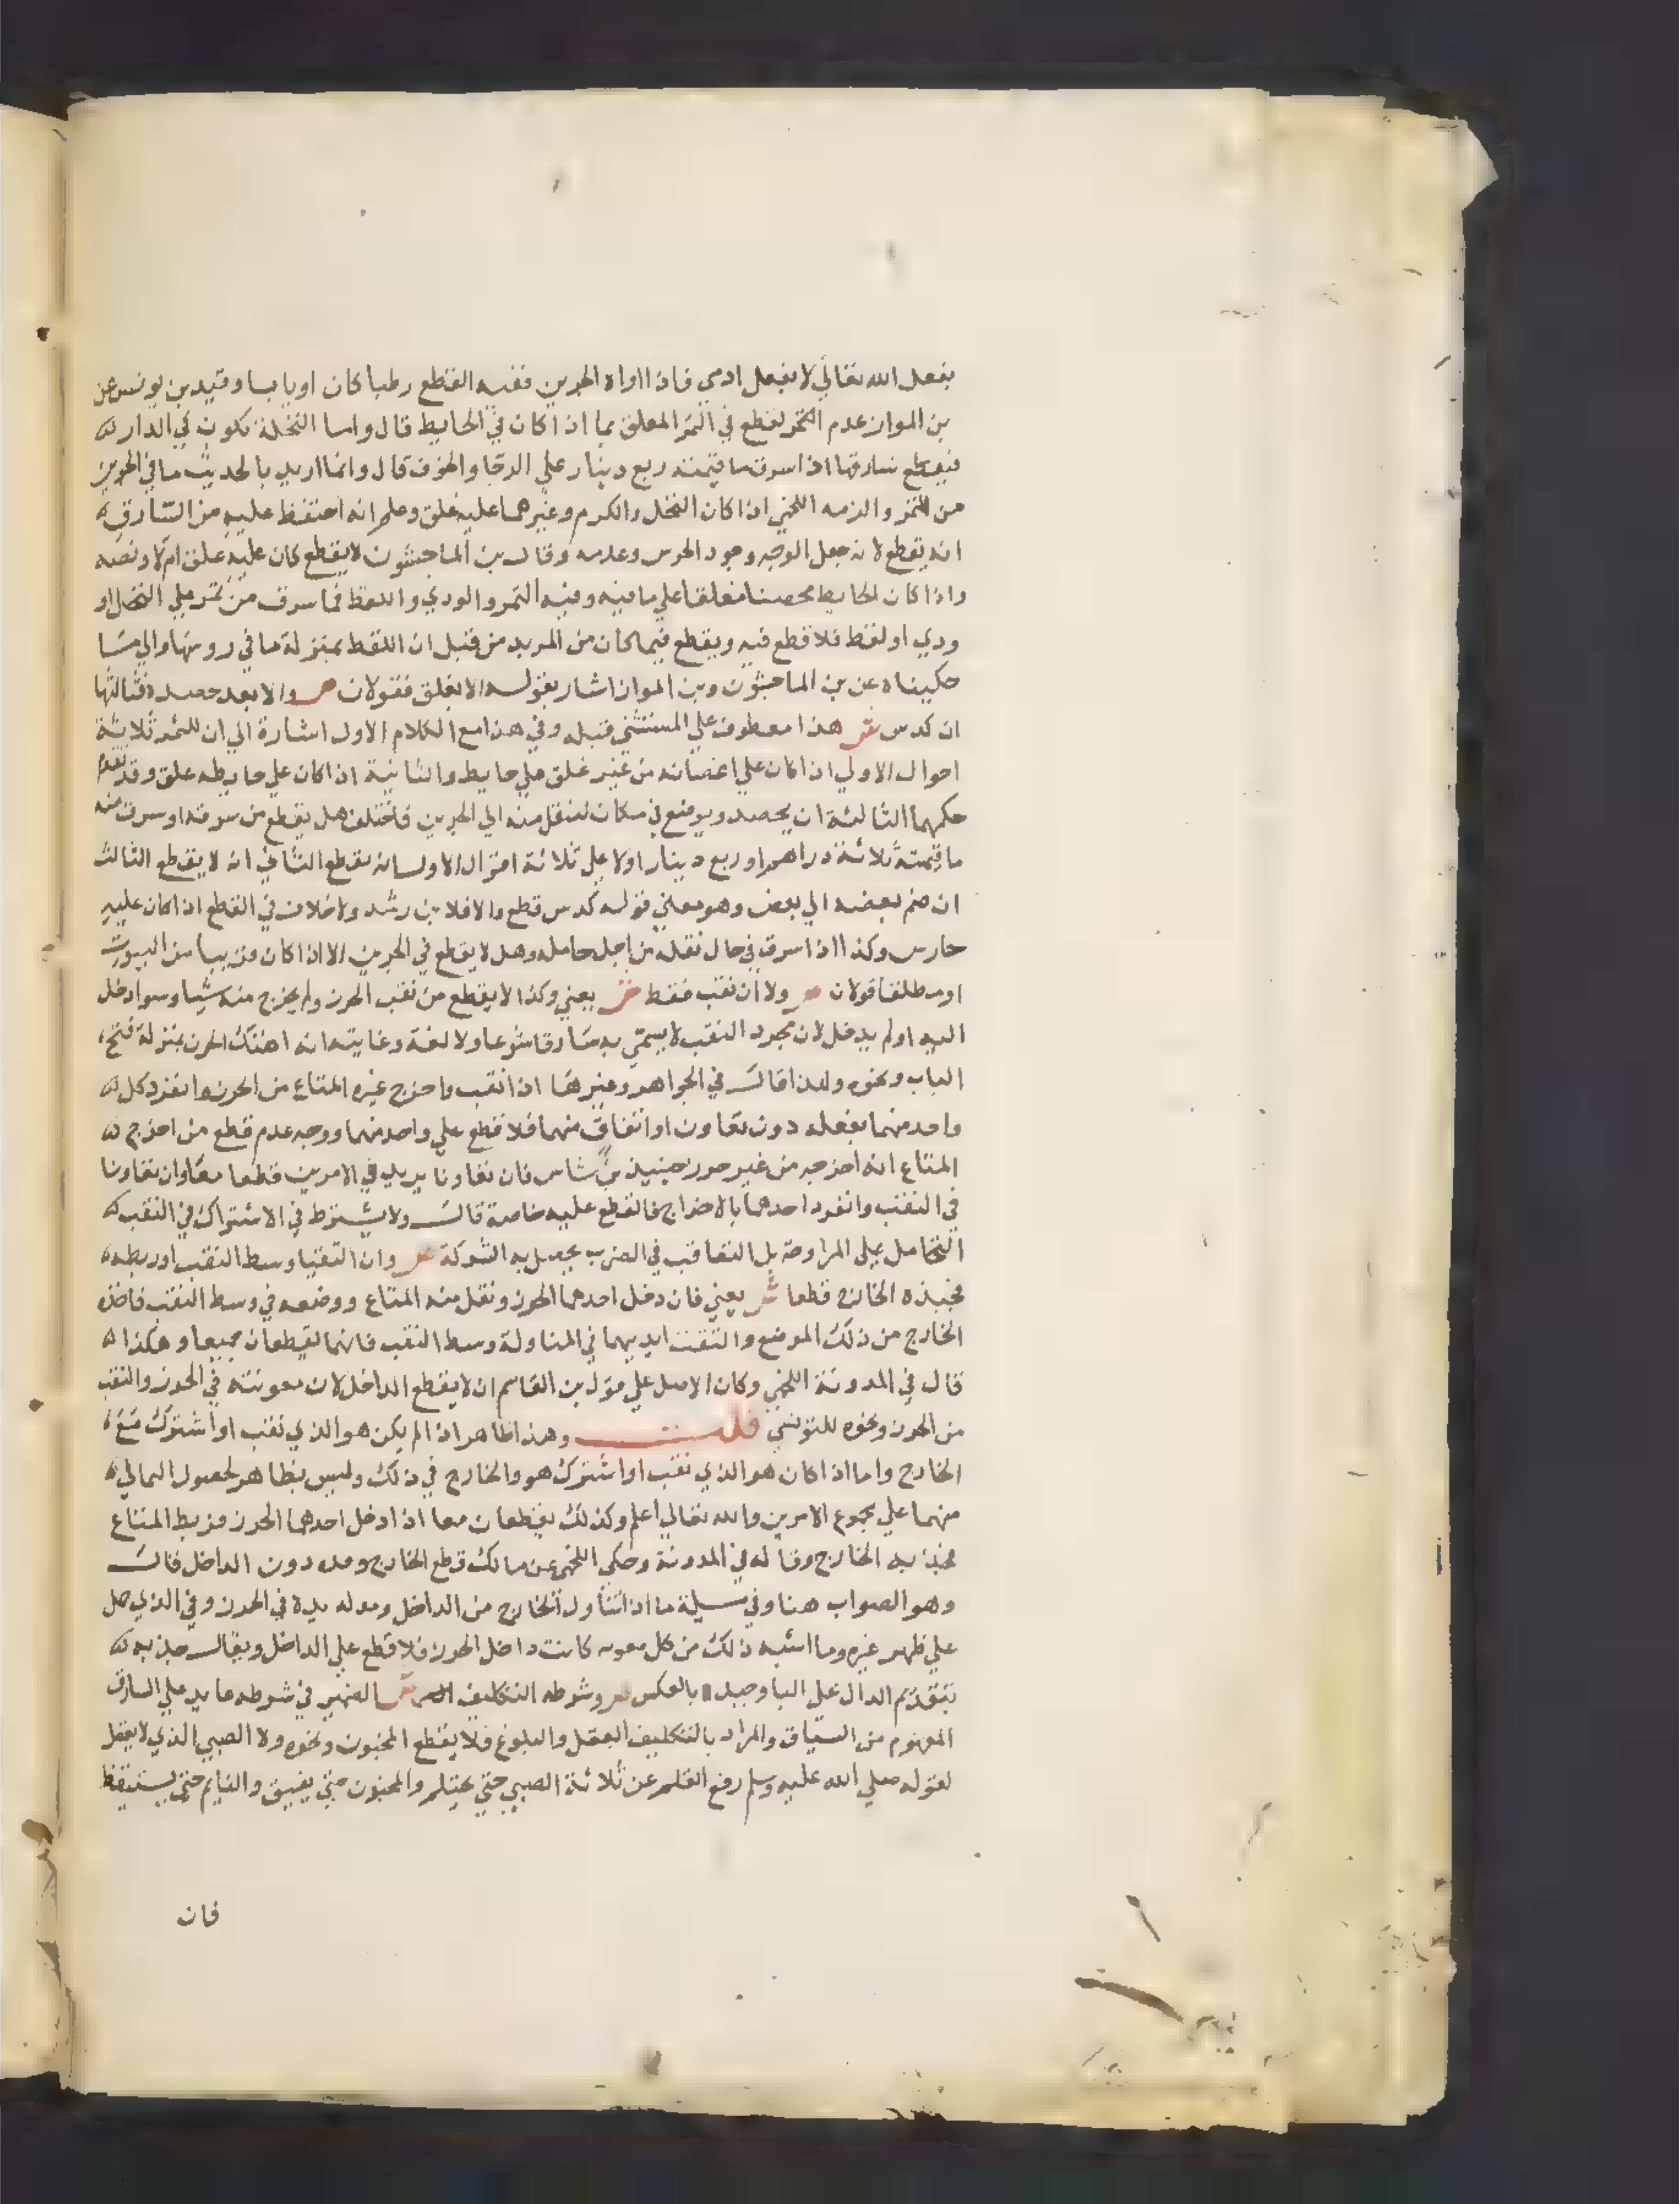 بفعل الله تعالي لا بفعل ادمي فاذا اواه الجرين ففيه القطع رطبا كان او يابسا وقيد بن يونس عن
بن المواز عدم القطع في الثمر المعلق بما اذا كان في الحايط قال واما النخلة تكون في الدار
فيقطع سارقها اذا سرق ما قيمته ربع دينار علي الرجا والخوف قال وانما اريد بالحديث ما في الجرين
من الثمر والزمه اللخمي اذا كان النخل والكرم وغيرهما عليه غلق وعلم انه احتفظ عليه من السارق
انه يقطع لانه جعل الوجه وجود الحرس وعدمه وقال بن الماجشون لا يقطع كان عليه غلق ام لا ونصه
واذا كان الحايط محصنا مغلقا علي ما فيه وفيه الثمر والودي واللقط فما سرق من ثمر علي النخل او
ودي او لقط فلا قطع فيه ويقطع فيما كان من المربد من قبل ان اللقط بمنزلة ما في روسها والي ما
حكيناه عن بن الماجشون وبن المواز اشار بقوله الا بغلق فقولان ص والا بعد حصده فثالثها
ان كدس ش هذا معطوف علي المستثني قبله وفي هذا مع الكلام الاول اشارة الي ان للثمر ثلاثة
احوال الاولي اذا كان علي اغصانه من غير غلق علي حايط والثانية اذا كان علي حايطه غلق وقد تقدم
حكمهما الثالثة ان يحصد ويوضع في مكان لينقل منه الي الجرين فاختلف هل يقطع من سرقه او سرق منه
ما قيمته ثلاثة دراهم او ربع دينار اولا علي ثلاثة اقوال الاول انه يقطع الثاني انه لا يقطع الثالث
ان ضم بعضه الي بعض وهو معني قوله كدس قطع والا فلا بن رشد ولا خلاف في القطع اذا كان عليه
حارس وكذا اذا سرق في حال نقله من اجل حامله وهل لا يقطع في الجرين الا اذا كان قريبا من البيوت
او مطلقا قولان ص ولا ان نقب فقط ش يعني وكذا لا يقطع من نقب الحرز ولم يخرج منه شيا وسوا دخل
اليه او لم يدخل لان مجرد النقب لا يسمي به سارقا شرعا ولا لغة وغايته انه اهتك الحرز بمنزلة فتح
الباب ونحوه ولهذا قال في الجواهر وغيرها اذا نقب واخرج غيره المتاع من الحرز وانفرد كل
واحد منهما بفعله دون تعاون او اتفاق منهما فلا قطع علي واحد منهما ووجه عدم قطع من اخرج
المتاع انه اخرجه من غير حرز حينيذ بن شاس فان تعاونا يريد في الامرين قطعا معا وان تعاونا
في النقب وانفرد احدهما بالاخراج فالقطع عليه خاصة قال ولا يشترط في الاشتراك في النقب
التحامل علي المراوحة بل التعاقب في الضرب يحصل به الشركة ص وان التقيا وسط النقب او ربطه
فجبذه الخارج قطعا ش يعني فان دخل احدهما الحرز ونقل منه المتاع ووضعه في وسط النقب فاخذه
الخارج من ذلك الموضع والتقت ايديهما في المناولة وسط النقب فانهما يقطعان جميعا وهكذا
قال في المدونة اللخمي وكان الاصل علي قول بن القاسم ان لا يقطع الداخل لان معونته في الحرز والنقب
من الحرز ونحوه للتونسي قلت وهذا ظاهر اذا لم يكن هو الذي نقب او اشترك مع
الخارج واما اذا كان هو الذي نقب او اشترك هو والخارج في ذلك وليس بظاهر لحصول
منهما علي مجموع الامرين والله تعالي اعلم وكذلك يقطعان معا اذا دخل احدهما الحرز فربط المتاع
فجذبه الخارج وقاله في المدونة وحكي اللخمي عن مالك قطع الخارج وحده دون الداخل قال
وهو الصواب هنا وفي مسيلة ما اذا تناول الخارج من الداخل ومد له يده في الحرز وفي الذي حمل
علي ظهر غيره وما اشبه ذلك من كل معونه كانت داخل الحرز فلا قطع علي الداخل ويقال جذبه
بتقديم الدال علي البا وجبذه بالعكس ص وشرطه التكليف ش الضمير في شرطه عايد علي السارق
المفهوم من السياق والمراد بالتكليف العقل والبلوغ فلا يقطع المجنون ونحوه ولا الصبي الذي لا يعقل
لقوله صلي الله عليه وسلم رفع القلم عن ثلاثة الصبي حتي يحتلم والمجنون حتي يفيق والنايم حتي يستيقظ
فان